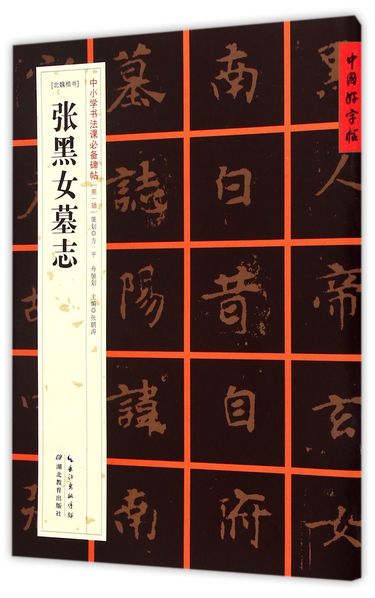 中国好字帖
帝
玄
女
南
白
自
府
墓
陽
諱
南
中小学书法课必备碑帖(第一辑) 策划◎方 平 舟恒划 主编◎张鹏涛
[北魏楷书]
张黑女墓志
长江出版传媒
湖北教育出版社